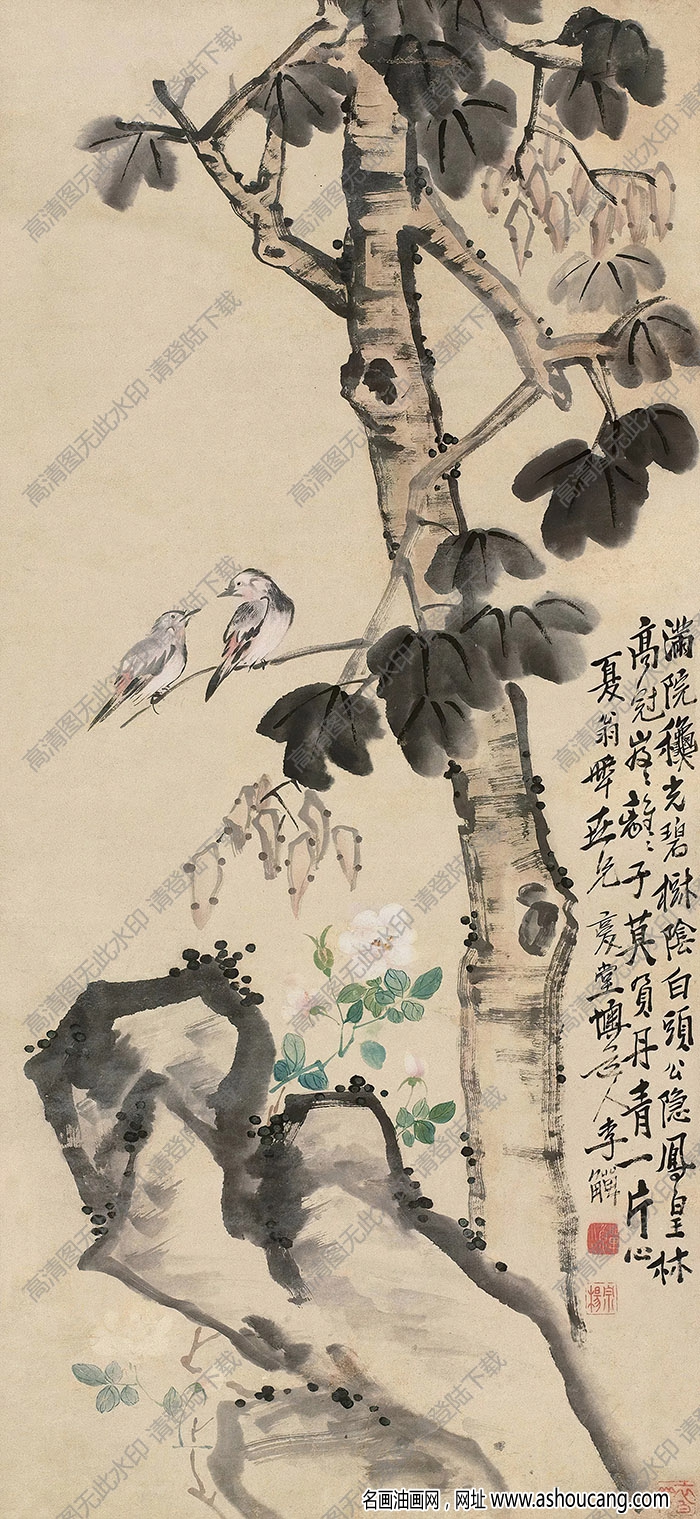 滿院龝光碧樹陰白頭公隱鳳皇林
高冠峩〻離〻子莫負丹青一片心
夏翁世兄堂李觶
宗楊
高清图无此水印 请登陆下载
名画油画网，网址 www.ashoucang.com